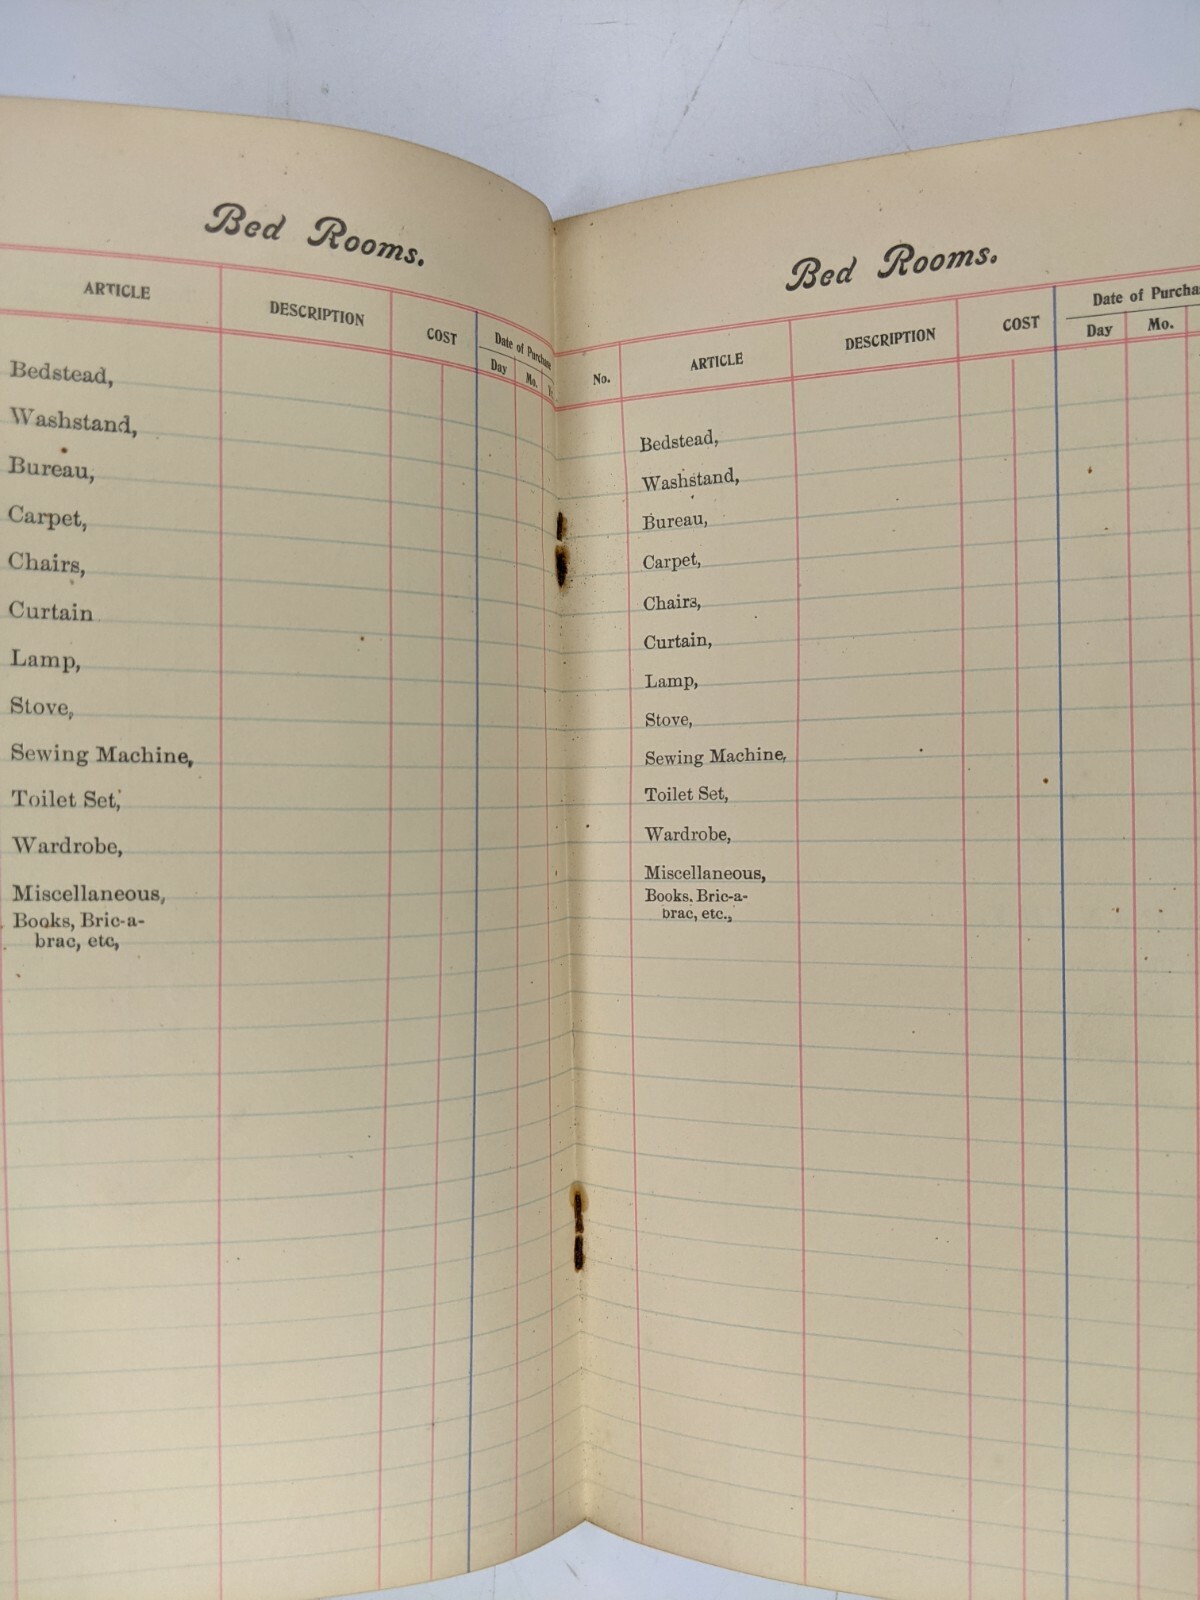 Bed Rooms.
ARTICLE DESCRIPTION COST Date of Purchase
Day Mo.
Bedstead,
Washstand,
Bureau,
Carpet,
Chairs,
Curtain
Lamp,
Stove,
Sewing Machine,
Toilet Set,
Wardrobe,
Miscellaneous,
Books, Bric-a-
brac, etc,
Bed Rooms.
No. ARTICLE DESCRIPTION COST Date of Purcha
Day Mo.
Bedstead,
Washstand,
Bureau,
Carpet,
Chairs,
Curtain,
Lamp,
Stove,
Sewing Machine,
Toilet Set,
Wardrobe,
Miscellaneous,
Books. Bric-a-
brac, etc.,